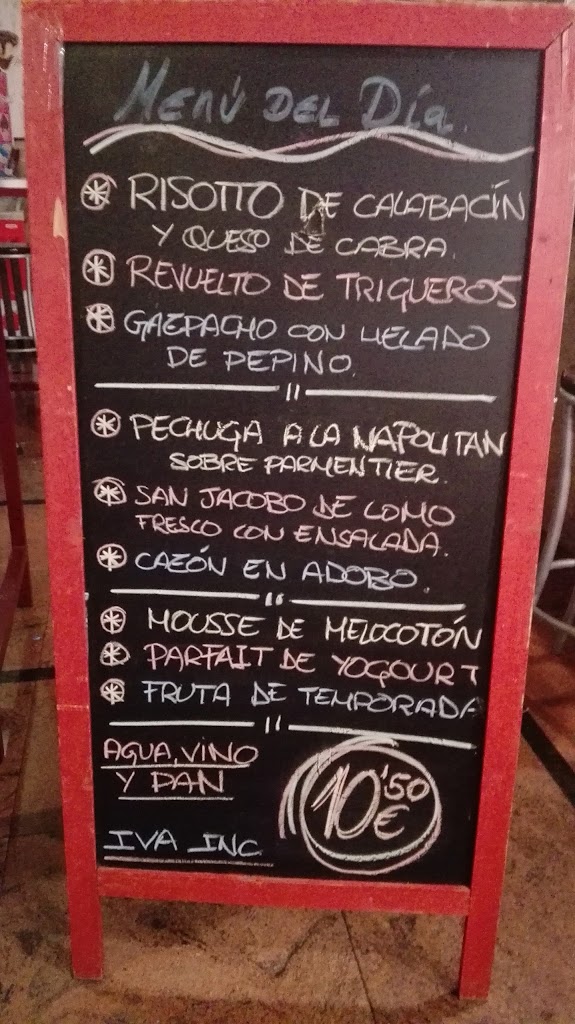 Menú del Día.
RISOTTO DE CALABACÍN
Y QUESO DE CABRA.
REVUELTO DE TRIGUEROS
GAZPACHO CON HELADO
DE PEPINO.
PECHUGA A LA NAPOLITAN
SOBRE PARMENTIER.
SAN JACOBO DE LOMO
FRESCO CON ENSALADA.
CAZÓN EN ADOBO.
MOUSSE DE MELOCOTÓN
PARFAIT DE YOGOURT
FRUTA DE TEMPORADA
AGUA, VINO
Y PAN
10'50
€
IVA INC